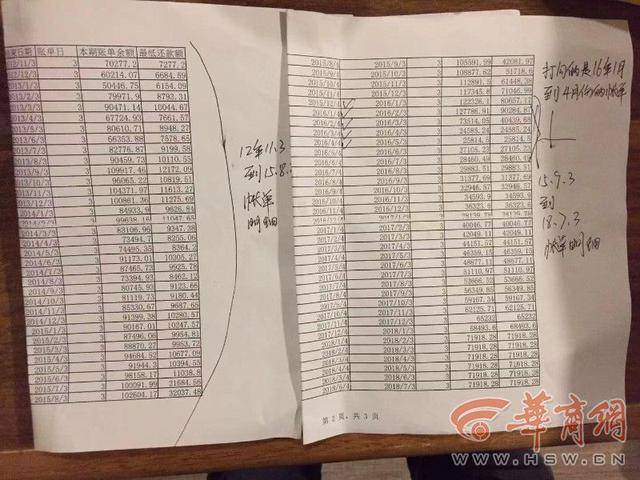 束日期 账单日 本期账单余额 最低还款额
2012/11/3 3 70277.2 7277.2
2012/12/3 3 60214.07 6684.59
2013/1/3 3 50446.75 6154.09
2013/2/3 3 79971.9 8793.31
2013/3/3 3 90471.14 10044.67
2013/4/3 3 67724.93 7661.57
2013/5/3 3 80610.71 8948.27
2013/6/3 3 66353.88 7578.65
2013/7/3 3 82776.87 9199.58
2013/8/3 3 90459.73 10110.55
2013/9/3 3 109917.46 12172.09
2013/10/3 3 96065.22 10819.51
2013/11/3 3 104371.97 11613.27
2013/12/3 3 100861.36 11275.69
2014/1/3 3 84933.9 9626.84
2014/2/3 3 99638.18 11047.65
2014/3/3 3 83106.96 9347.38
2014/4/3 3 73494.7 8255.06
2014/5/3 3 74495.35 8364.2
2014/6/3 3 91173.01 10305.27
2014/7/3 3 87465.73 9925.78
2014/8/3 3 73394.93 8462.12
2014/9/3 3 80745.93 9123.66
2014/10/3 3 81119.73 9180.44
2014/11/3 3 85330.67 9687.65
2014/12/3 3 91399.38 10280.57
2015/1/3 3 90167.01 10247.57
2015/2/3 3 87496.06 9954.81
2015/3/3 3 88870.27 9953.72
2015/4/3 3 94684.52 10677.09
2015/5/3 3 91944.3 10394.55
2015/6/3 3 98158.17 11038.8
2015/7/3 3 100091.99 21684.56
2015/8/3 3 102604.17 32037.48
12年11.3
到15.8.
帐单
明细
2015/8/4 2015/9/3 3 105591.99 42081.97
2015/9/4 2015/10/3 3 108877.62 51718.6
2015/10/4 2015/11/3 3 112891.5 61448.38
2015/11/4 2015/12/3 3 117345.8 71046.99
2015/12/4 2016/1/3 3 122326.1 80657.1
2016/1/4 2016/2/3 3 127786.91 90284.87
2016/2/4 2016/3/3 3 73514.05 40439.68
2016/3/4 2016/4/3 3 24585.24 24585.24
2016/4/4 2016/5/3 3 25814.5 25814.5
2016/5/4 2016/6/3 3 27105.23 27105.23
2016/6/4 2016/7/3 3 28460.49 28460.49
2016/7/4 2016/8/3 3 29883.51 29883.51
2016/8/4 2016/9/3 3 31377.69 31377.69
2016/9/4 2016/10/3 3 32946.57 32946.57
2016/10/4 2016/11/3 3 34593.9 34593.9
2016/11/4 2016/12/3 3 36323.6 36323.6
2016/12/4 2017/1/3 3
2017/1/4 2017/2/3 3 40046.77 40046.77
2017/2/4 2017/3/3 3 42049.11 42049.11
2017/3/4 2017/4/3 3 44151.57 44151.57
2017/4/4 2017/5/3 3 46359.15 46359.15
2017/5/4 2017/6/3 3 48677.11 48677.11
2017/6/4 2017/7/3 3 51110.97 51110.97
2017/7/4 2017/8/3 3 53666.52 53666.52
2017/8/4 2017/9/3 3 56349.85 56349.85
2017/9/4 2017/10/3 3 59167.34 59167.34
2017/10/4 2017/11/3 3 62125.71 62125.71
2017/11/4 2017/12/3 3 65232 65232
2017/12/4 2018/1/3 3 68493.6 68493.6
2018/1/4 2018/2/3 3 71918.28 71918.28
2018/2/4 2018/3/3 3 71918.28 71918.28
2018/3/4 2018/4/3 3 71918.28 71918.28
2018/4/4 2018/5/3 3 71918.28 71918.28
2018/5/4 2018/6/3 3 71918.28 71918.28
2018/6/4 2018/7/3 3 71918.28 71918.28
第 2 页，共 3 页
打勾的是16年1月
到4月份的帐单
15.9.3
到
18.7.3
帐单明细
华商网
WWW.HSW.CN